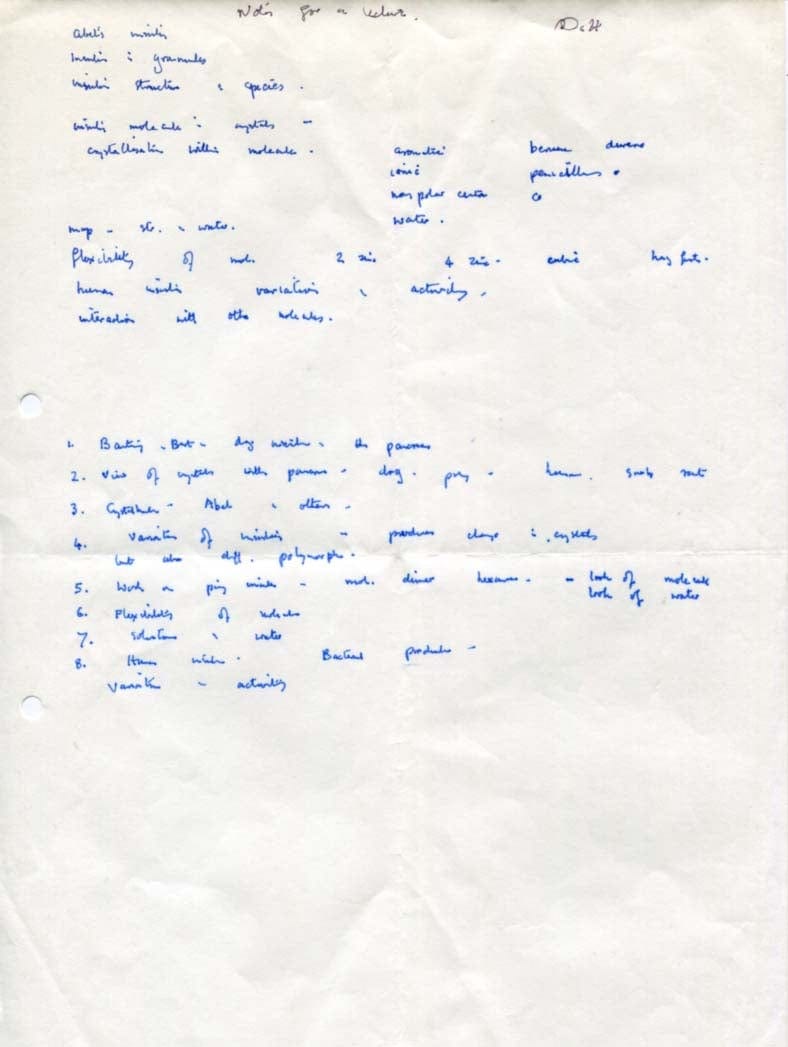 Notes for a lecture. DCH
Abel's insulin
Insulin in granules
insulin structure & species.
insulin molecule in crystals -
crystallisation within molecule.
aromatic benzene durene
ionic penicillins
non polar
water.
map - str. & water.
flexibility of mol. 2 zinc 4 zinc - cubic
human insulin variations & activity.
interaction with other molecules.
1. Banting & Best - dog insulin & the pancreas
2. View of crystals with pancreas - dog. pig - human.
3. Crystals - Abel & others -
4. Varieties of insulin - produce change in crystals
but also diff. polymorphs.
5. Work on pig insulin - mol. dimer hexamer. - look of molecule
look of water
6. Flexibility of molecule
7. Solution & water
8. Human insulin. Bacterial production -
Variation & activity